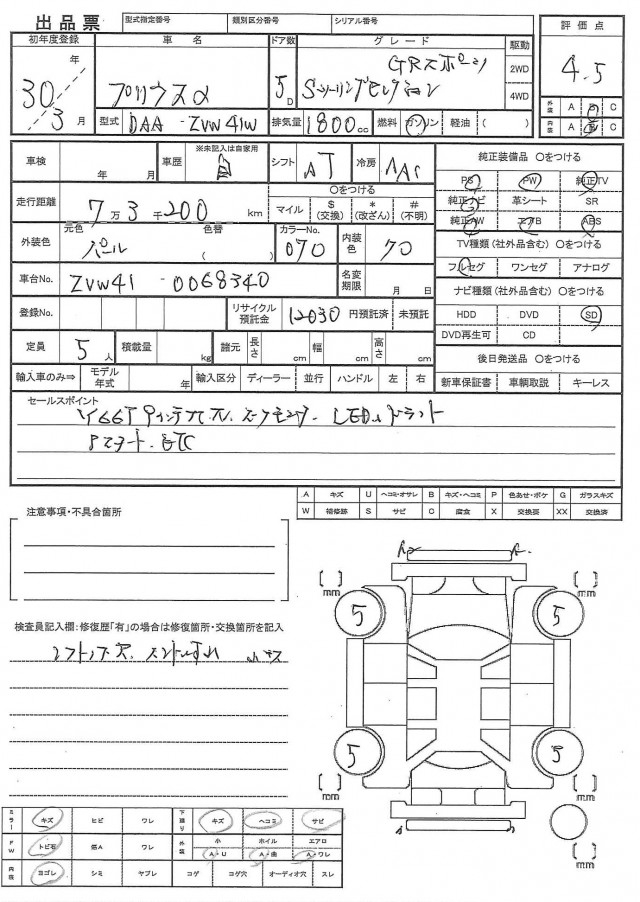 出品票 型式指定番号 類別区分番号 シリアル番号
初年度登録 車名 ドア数 グレード 駆動 評価点
30年3月 プリウスα 5D Sツーリングセレクション GRスポーツ 2WD 4WD 4.5
外装 A B C
内装 A B C
型式 DAA - ZVW41W 排気量 1800cc 燃料 ガソリン 軽油 ( )
車検 年 月 車歴 ※未記入は自家用 自 シフト AT 冷房 AAC
走行距離 7万3千200 km ○をつける マイル $(交換) *(改ざん) #(不明)
外装色 元色 パール 色替 ( ) カラーNo. 070 内装色 70
車台No. ZVW41 - 0068340 名変期限 月 日
登録No. リサイクル預託金 12030 円預託済 未預託
定員 5人 積載量 kg 諸元 長さ cm 幅 cm 高さ cm
輸入車のみ⇒ モデル年式 年 輸入区分 ディーラー 並行 ハンドル 左 右
純正装備品 ○をつける
PS PW 純正TV
純正ナビ 革シート SR
純正AW エアB ABS
TV種類(社外品含む) ○をつける
フルセグ ワンセグ アナログ
ナビ種類(社外品含む) ○をつける
HDD DVD SD
DVD再生可 CD
後日発送品 ○をつける
新車保証書 車輌取説 キーレス
セールスポイント
Pスタート. ETC
A キズ U ヘコミ・オサレ B キズ・ヘコミ P 色あせ・ボケ G ガラスキズ
W 補修跡 S サビ C 腐食 X 交換要 XX 交換済
注意事項・不具合箇所
検査員記入欄:修復歴「有」の場合は修復箇所・交換箇所を記入
[ ] mm [ ] mm
5 5
5 5
[ ] mm [ ] mm
[ ] mm
ミラー キズ ヒビ ワレ 下廻り キズ ヘコミ サビ
FW トビ石 筋A ワレ 外装 小 A・U ホイル A・曲 エアロ A・ワレ
内装 ヨゴレ シミ ヤブレ コゲ コゲ穴 オーディオ穴 スレ